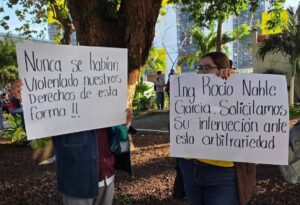 Nunca se habían
Violentado nuestros
Derechos de esta
forma !!
Ing Rocío Nahle
García. Solicitamos
Su intervención ante
esta arbitrariedad